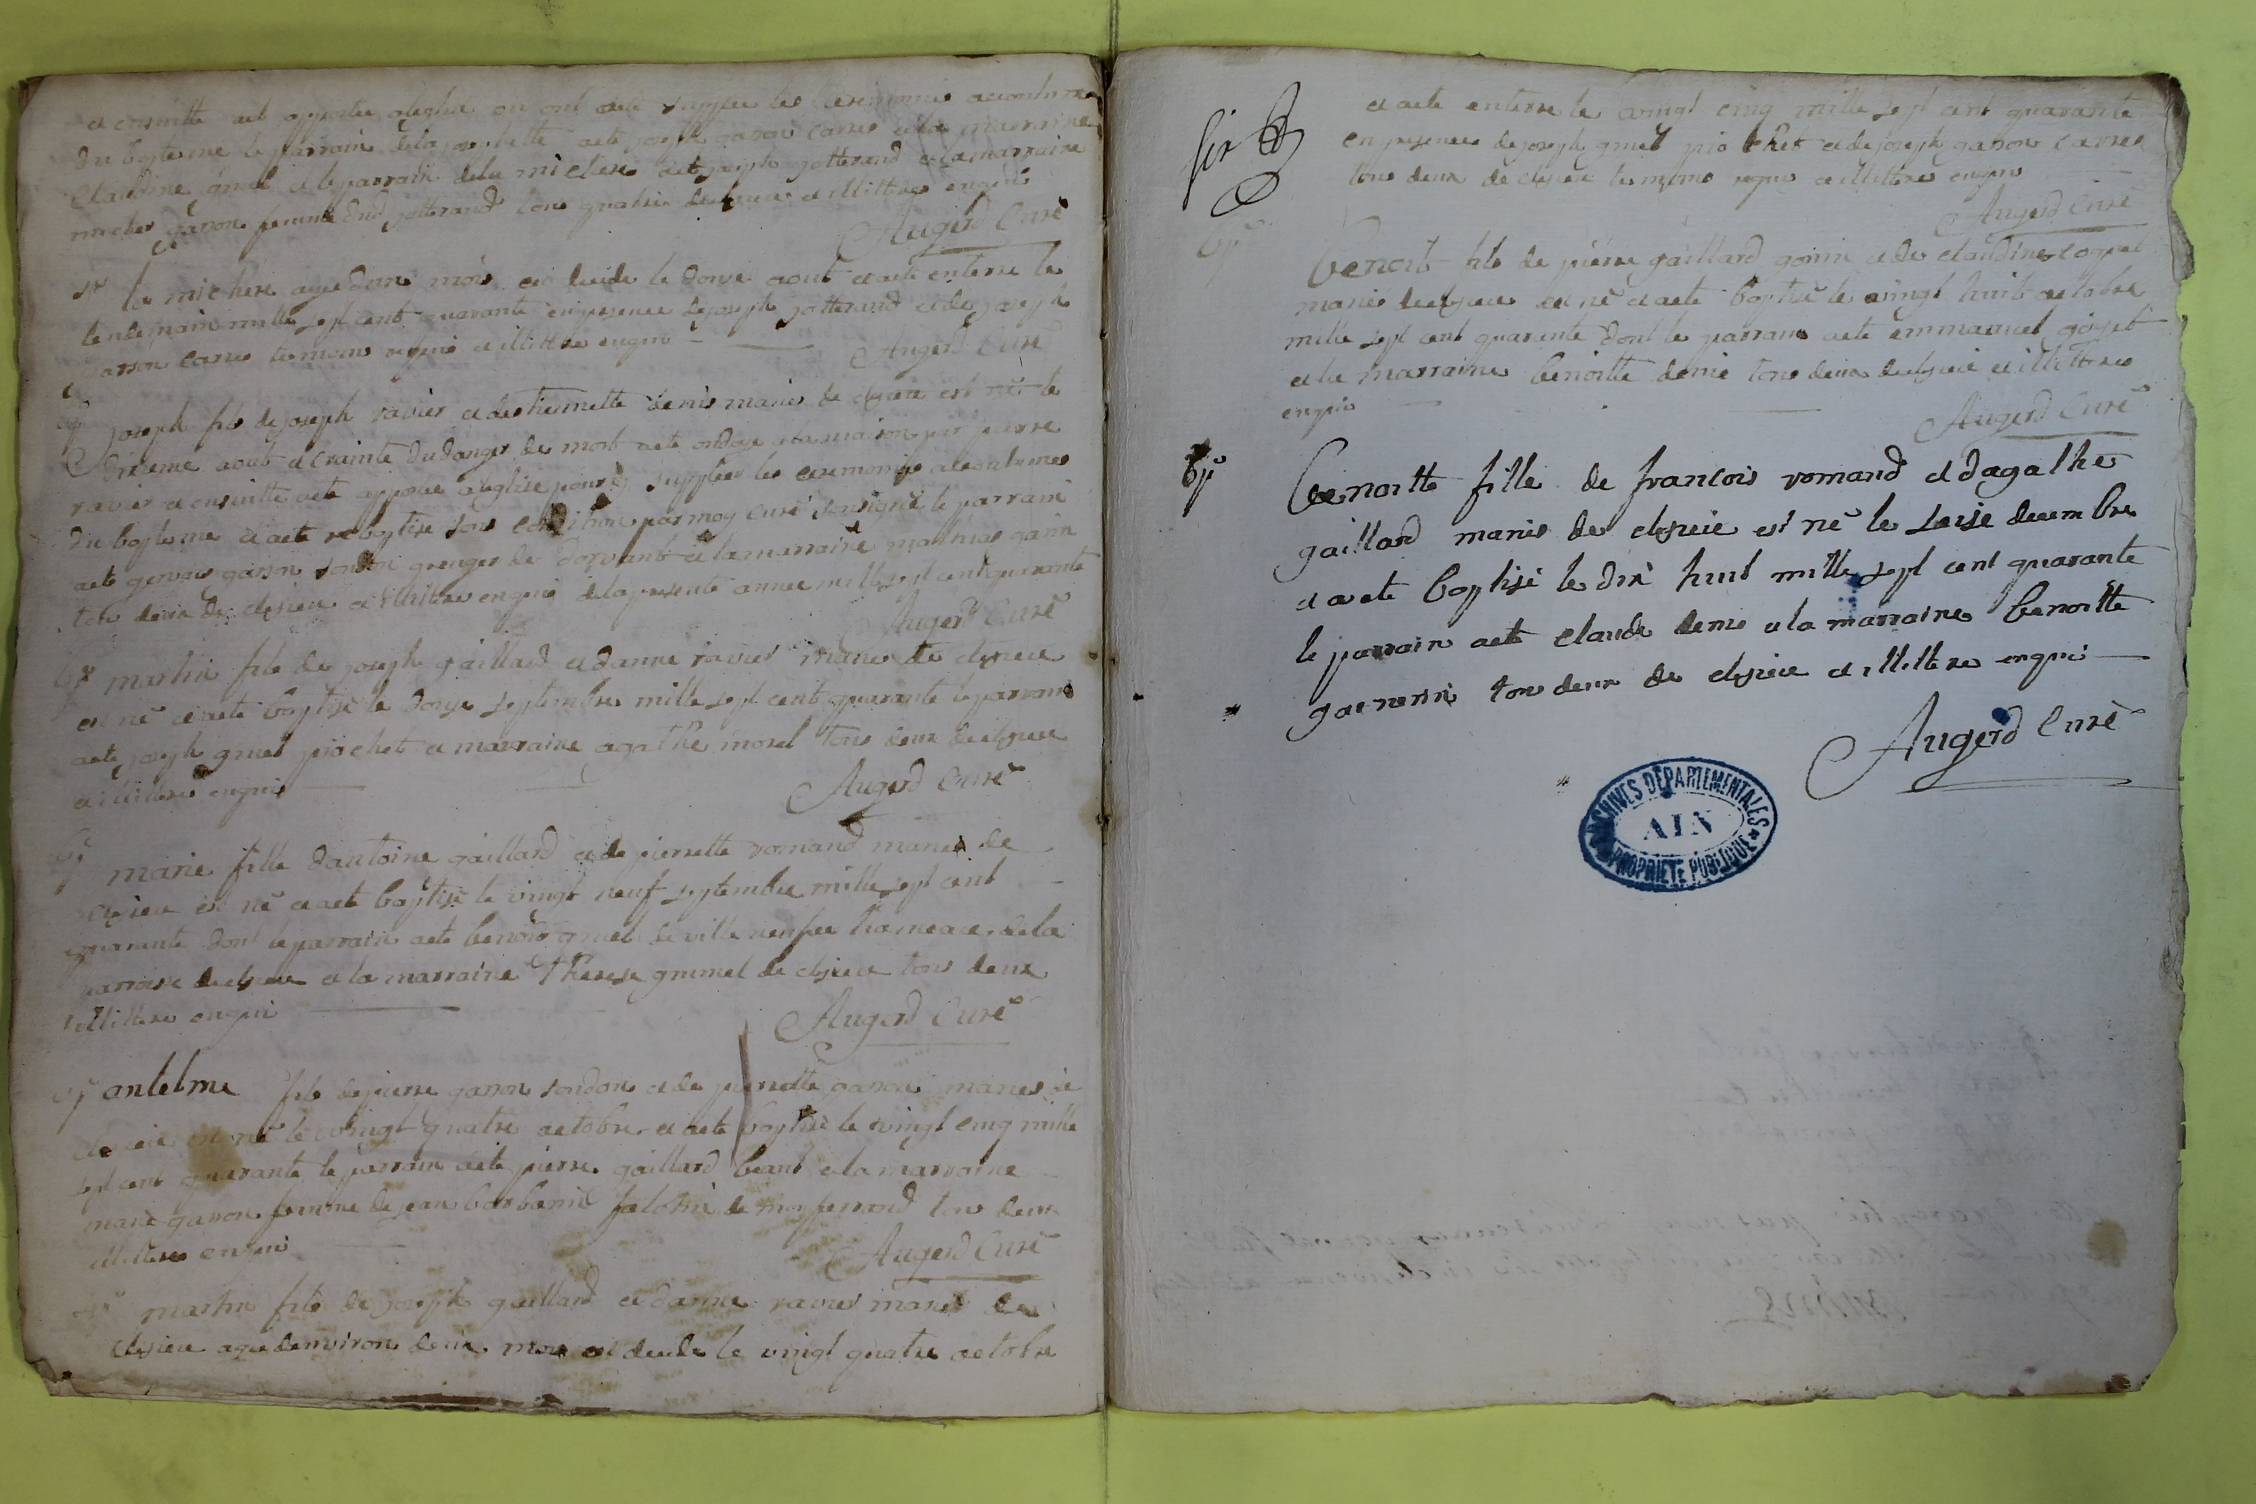 et ensuitte aeté apportée a leglise ou ont eté supplee les ceremonies accoutumees
du bapteme le parrain dela josephette aeté joseph garon carre et la marraine
claudine gruel et le parrain dela michere aeté joseph jotterand et la marraine
michere garon femme dud jotterand tous quatre de clezieu et illitteres enquis
Augerd Curé
la michere agée dun mois est decede le douze aout et aeté enterre le
lendemain mille sept cent quarante en presence de joseph jotterand et de joseph
garon carre temoins requis et illittere enquis
Augerd Curé
joseph fils de joseph ravier et de thermette denis mariés de clezieu est né le
dixieme aout et crainte du danger de mort aeté ondoyé a la maison par pierre
ravier et ensuitte aeté apporté a leglise pour y supplier les ceremonies accoutumees
du bapteme et aeté rebaptisé sous condition par moy curé soussigné le parrain
aeté gervais garon sondon granger de dorvant et la marraine mathias garin
tous deux de clezieu et illittere enquis dela presente annee mille sept cent quarante
Augerd Curé
bp martin fils de joseph gaillard et danne ravier mariés de clezieu
est né et aeté baptisé le douze septembre mille sept cent quarante le parrain
aeté joseph gruel piochet et marraine agathe morel tous deux de clezieu
et illitteres enquis
Augerd Curé
marie fille dantoine gaillard et de pierrette romand mariés de
clezieu est né et aeté baptisé le vingt neuf septembre mille sept cent
quarante dont le parrain aeté benoit gruel de ville neufve hameau de la
parroisse de clezieu et la marraine therese grumel de clezieu tous deux
illittere enquis
Augerd Curé
bp antelme fils de pierre garon sondon et de pierrette garon mariés de
clezieu est né le vingt quatre octobre et aeté baptisé le vingt cinq mille
sept cent quarante le parrain aeté pierre gaillard beant et la marraine
marie garon femme de jean barbarin de monferrand tous deux
illitteres enquis
Augerd Curé
martin fils de joseph gaillard et danne ravier mariés de
clezieu agé denviron deux mois est decede le vingt quatre octobre
six
et aeté enterre le vingt cinq mille sept cent quarante
en presence de joseph gruel piochet et de joseph garon carre
tous deux de clezieu temoins requis et illittere enquis
Augerd Curé
bp
benoit fils de pierre gaillard goinin et de claudine
mariés de clezieu est né et aeté baptisé le vingt huit octobre
mille sept cent quarante dont le parrain aeté emmanuel goyet
et la marraine benoitte denis tous deux de clezieu et illitteres
enquis
Augerd Curé
bp
benoitte fille de francois romand et dagathe
gaillard mariés de clezieu est né le seise decembre
et aeté baptisé le dix huit mille sept cent quarante
le parrain aeté claude denis et la marraine benoitte
tous deux de clezieu et illittere enquis
Augerd Curé
ARCHIVES DÉPARTEMENTALES
AIN
PROPRIÉTÉ PUBLIQUE